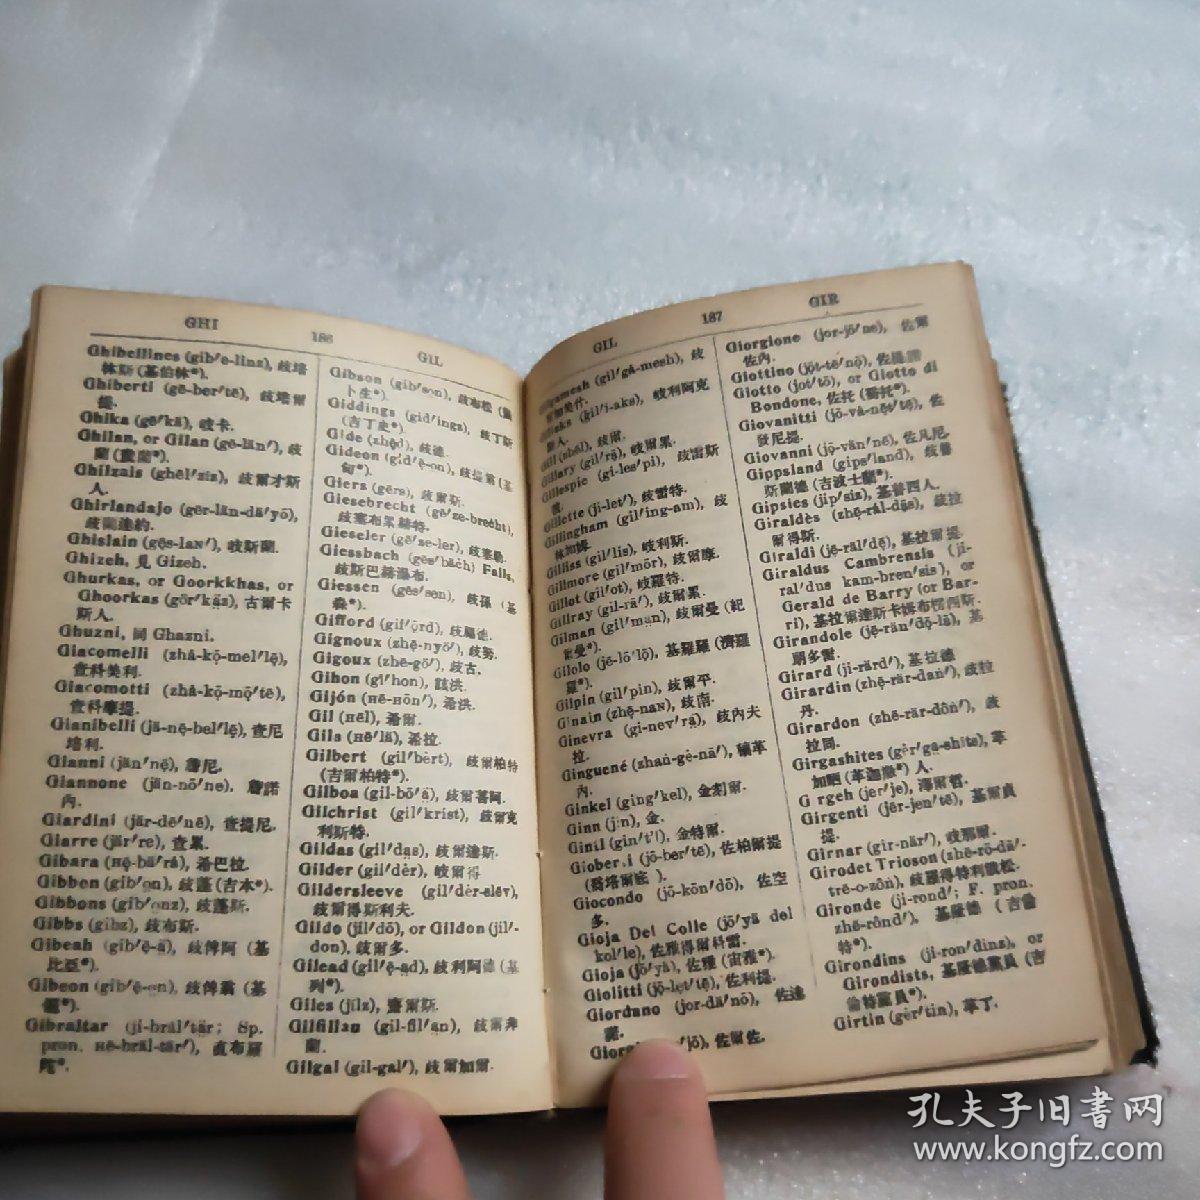 GHI 186 GIL
Ghibellines (gib′e-linz), 歧培
林斯 (基伯林*).
Ghiberti (gē-ber′tē), 歧培爾
提.
Ghika (gē′kä), 歧卡.
Ghilan, or Gilan (gē-län′), 歧
蘭
Ghilzais (ghēl′zīs), 歧爾才斯
人.
Ghirlandajo (gēr-län-dä′yō),
歧蘭達約.
Ghislain (gēs-lan′), 歧斯蘭.
Ghizeh, 見 Gizeh.
Ghurkas, or Goorkkhas, or
Ghoorkas (gōr′käs), 古爾卡
斯人.
Ghuzni, 同 Ghazni.
Giacomelli (zhá-kọ-mel′lẹ),
查科美利.
Giacomotti (zhá-kọ-mọ′tē),
查科摩提.
Gianibelli (jä-nẹ-bel′lẹ), 查尼
培利.
Gianni (jän′nẹ), 詹尼.
Giannone (jän-nō′ne), 詹諾
內.
Giardini (jär-dē′nē), 查提尼.
Giarre (jär′re), 查累.
Gibara (Hẹ-bä′rá), 希巴拉.
Gibbon (gib′on), 歧蓬 (吉本*).
Gibbons (gib′onz), 歧蓬斯.
Gibbs (gibz), 歧布斯.
Gibeah (gib′ẹ-ä), 歧俾阿 (基
比亞*).
Gibeon (gib′ẹ-on), 歧俾 (基
*).
Gibraltar (ji-bral′tär; Sp.
pron. Hē-bräl-tär′), 直布羅
陀*.
Gibson (gib′son), 歧布松
卜生*).
Giddings (gid′ingz), 歧丁斯
(吉丁史*).
Gide (zhēd), 歧德.
Gideon (gid′ẹ-on), 歧提 (基
甸*).
Giers (gērs), 歧爾斯.
Giesebrecht (gē′ze-brecht),
歧塞布累赫特.
Gieseler (gē′ze-ler), 歧塞勒.
Giessbach (gēs′bäch) Falls,
歧斯巴赫瀑布.
Giessen (gēs′sen), 歧孫 (基
森*).
Gifford (gif′ord), 歧福德.
Gignoux (zhẹ-nyō′), 歧努.
Gigoux (zhē-gō′), 歧古.
Gihon (gī′hon), 該洪.
Gijón (Hē-Hōn′), 希洪.
Gil (Hēl), 希爾.
Gila (Hē′lä), 希拉.
Gilbert (gil′bėrt), 歧爾柏特
(吉爾柏特*).
Gilboa (gil-bō′ä), 歧爾菩阿.
Gilchrist (gil′krist), 歧爾克
利斯特.
Gildas (gil′dạs), 歧爾達斯.
Gilder (gil′dėr), 歧爾得
Gildersleeve (gil′dėr-slēv),
歧爾得斯利夫.
Gildo (jil′dō), or Gildon (jil′-
don), 歧爾多.
Gilead (gil′ẹ-ạd), 歧利阿德 (基
列*).
Giles (jīlz), 齋爾斯.
Gilfillan (gil-fil′ạn), 歧爾弗
蘭.
Gilgal (gil-gal′), 歧爾加爾.
GIL 187 GIR
(gil′gá-mesh), 歧
(gil′i-aks), 歧利阿克
斯人.
Gill (shēl), 歧爾.
Gillary (gil′rä), 歧爾累.
Gillespie (gi-les′pi), 歧雷斯
Gillette (ji-let′), 歧雷特.
Gillingham (gil′ing-ạm), 歧
林加姆.
Gilliss (gil′lis), 歧利斯.
Gillmore (gil′mōr), 歧爾摩.
Gillot (gil′ot), 歧羅特.
Gillray (gil-rā′), 歧爾累.
Gilman (gil′mạn), 歧爾曼 (紀
爾曼*).
Gilolo (jē-lō′lọ), 基羅羅 (濟羅
羅*).
Gilpin (gil′pin), 歧爾平.
Ginain (zhẹ-nan), 歧南.
Ginevra (gi-nev′rạ), 歧內夫
拉.
Ginguené (zhaṅ-gẻ-nā′), 穰革
內.
Ginkel (ging′kel), 金刻爾.
Ginn (jin), 金.
Gintl (gin′t'l), 金特爾.
(jō-ber′tē), 佐柏爾提
Giocondo (jō-kōn′dō), 佐空
多.
Gioja Del Colle (jō′yä del
kol′le), 佐雅得爾科雷.
Gioja (jō′yä), 佐雅 (宙雅*).
Giolitti (jọ-let′tẹ), 佐利提.
Giordano (jor-dä′nō), 佐達
諾.
′jō), 佐爾佐.
Giorgione (jor-jō′ne), 佐爾
佐內.
Giottino (jọt-tē′nọ), 佐提諾
Giotto (jot′tō), or Giotto di
Bondone, 佐托 (喬托*).
Giovanitti (jō-vä-nẹt′tē), 佐
發尼提.
Giovanni (jọ-vän′nē), 佐凡尼.
Gippsland (gips′land), 歧普
斯蘭德 (吉波士蘭*).
Gipsies (jip′siz), 基普四人.
Giraldès (zhẹ-rál-dạs), 歧拉
爾得斯.
Giraldi (jẹ-räl′dẹ), 基拉爾提.
Giraldus Cambrensis (ji-
ral′dus kam-bren′sis), or
Gerald de Barry (or Bar-
ri), 基拉爾達斯卡姆布楞西斯.
Girandole (jẹ-rän′dọ-lā), 基
朗多雷.
Girard (ji-rärd′), 基拉德
Girardin (zhẹ-rär-daṅ′), 歧拉
丹.
Girardon (zhē-rär-dôṅ′), 歧
拉同.
Girgashites (gėr′gạ-shīts), 革
加晒 (革迦撒*) 人.
G rgeh (jer′je), 澤爾哲.
Girgenti (jēr-jen′tē), 基爾貞
提.
Girnar (gir-när′), 歧那爾.
Girodet Trioson (zhē-rō-dā′-
trē-o-zôn), 歧羅得特利俄松.
Gironde (ji-rond′; F. pron.
zhē-rônd′), 基隆德 (吉倫
特*).
Girondins (ji-ron′dins), or
Girondists, 基隆德黨員 (吉
倫特黨員*).
Girtin (gėr′tin), 革丁.
孔夫子旧書网
www.kongfz.com